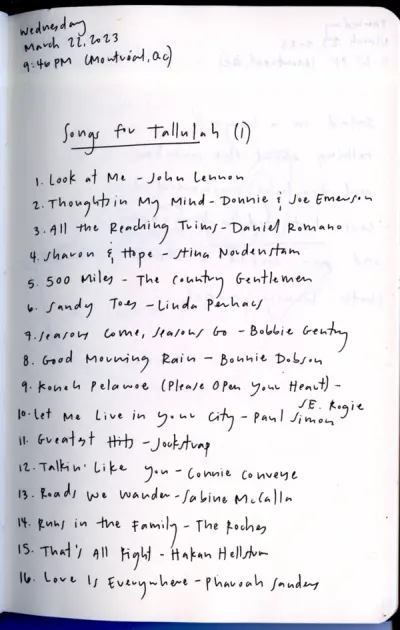 Wednesday
March 22, 2023
9:46 PM (Montréal, QC)
Songs for Tallulah (1)
1. Look at Me - John Lennon
2. Thoughts in My Mind - Donnie & Joe Emerson
3. All the Reaching Trims - Daniel Romano
4. Sharon & Hope - Stina Nordenstam
5. 500 Miles - The Country Gentlemen
6. Sandy Toes - Linda Perhacs
7. Seasons Come, Seasons Go - Bobbie Gentry
8. Good Morning Rain - Bonnie Dobson
9. Koneh Pelawoe (Please Open Your Heart) -
S.E. Rogie
10. Let Me Live in Your City - Paul Simon
11. Greatest Hits - Jockstrap
12. Talkin' Like You - Connie Converse
13. Roads We Wander - Sabine McCalla
14. Runs in the Family - The Roches
15. That's All Right - Hakan Hellstrom
16. Love Is Everywhere - Pharoah Sanders